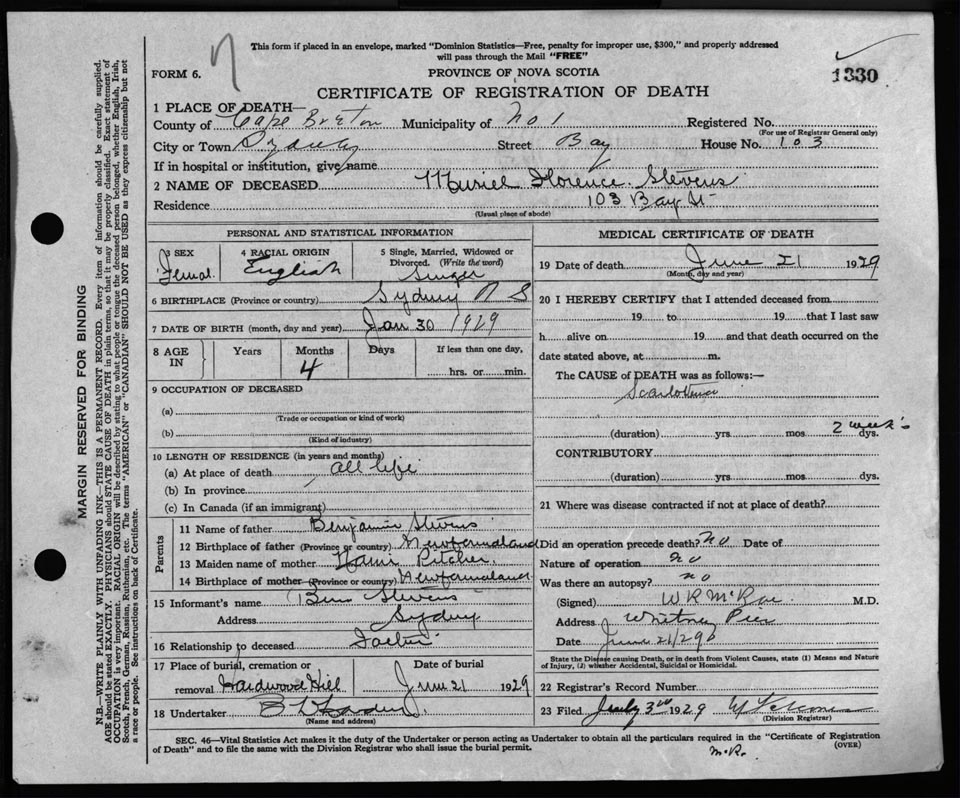 This form if placed in an envelope, marked "Dominion Statistics—Free, penalty for improper use, $300," and properly addressed
will pass through the Mail "FREE"
FORM 6.
PROVINCE OF NOVA SCOTIA
1330
CERTIFICATE OF REGISTRATION OF DEATH
1 PLACE OF DEATH—
County of Cape Breton Municipality of No 1 Registered No.
(For use of Registrar General only)
City or Town Sydney Street Bay House No. 103
If in hospital or institution, give name
2 NAME OF DECEASED Muriel Florence Stevens
Residence 103 Bay St
(Usual place of abode)
PERSONAL AND STATISTICAL INFORMATION
3 SEX 4 RACIAL ORIGIN 5 Single, Married, Widowed or
Divorced. (Write the word)
Femal. English
6 BIRTHPLACE (Province or country) Sydney N S
7 DATE OF BIRTH (month, day and year) Jan 30 1929
8 AGE IN Years Months Days If less than one day,
4 hrs. or min.
9 OCCUPATION OF DECEASED
(a)
(Trade or occupation or kind of work)
(b)
(Kind of industry)
10 LENGTH OF RESIDENCE (in years and months)
(a) At place of death all life
(b) In province
(c) In Canada (if an immigrant)
Parents
11 Name of father Benjamin Stevens
12 Birthplace of father (Province or country) Newfoundland
13 Maiden name of mother
14 Birthplace of mother (Province or country) Newfoundland
15 Informant's name Benn Stevens
Address Sydney
16 Relationship to deceased Father
17 Place of burial, cremation or Date of burial
removal Hardwood Hill June 21 1929
18 Undertaker
(Name and address)
MEDICAL CERTIFICATE OF DEATH
19 Date of death June 21 1929
(Month, day and year)
20 I HEREBY CERTIFY that I attended deceased from
19 to 19 that I last saw
h alive on 19 and that death occurred on the
date stated above, at m.
The CAUSE of DEATH was as follows:—
(duration) yrs mos 2 weeks dys.
CONTRIBUTORY
(duration) yrs mos dys.
21 Where was disease contracted if not at place of death?
Did an operation precede death? no Date of
Nature of operation no
Was there an autopsy? no
(Signed) W R McRae M.D.
Address Whitney Pier
Date June 21/29
State the Disease causing Death, or in death from Violent Causes, state (1) Means and Nature
of Injury, (2) whether Accidental, Suicidal or Homicidal.
22 Registrar's Record Number
23 Filed July 3rd 1929
(Division Registrar)
SEC. 46—Vital Statistics Act makes it the duty of the Undertaker or person acting as Undertaker to obtain all the particulars required in the "Certificate of Registration
of Death" and to file the same with the Division Registrar who shall issue the burial permit. (OVER)
McR.
MARGIN RESERVED FOR BINDING
N.B.—WRITE PLAINLY WITH UNFADING INK—THIS IS A PERMANENT RECORD. Every item of information should be carefully supplied.
AGE should be stated EXACTLY. PHYSICIANS should STATE CAUSE OF DEATH in plain terms, so that it may be properly classified. Exact statement of
OCCUPATION is very important. RACIAL ORIGIN will be described by stating to what people or tongue the deceased person belonged, whether English, Irish,
Scotch, French, German, Russian, Ruthenian, etc. The terms "AMERICAN" or "CANADIAN" SHOULD NOT BE USED as they express citizenship but not
a race or people. See instructions on back of Certificate.